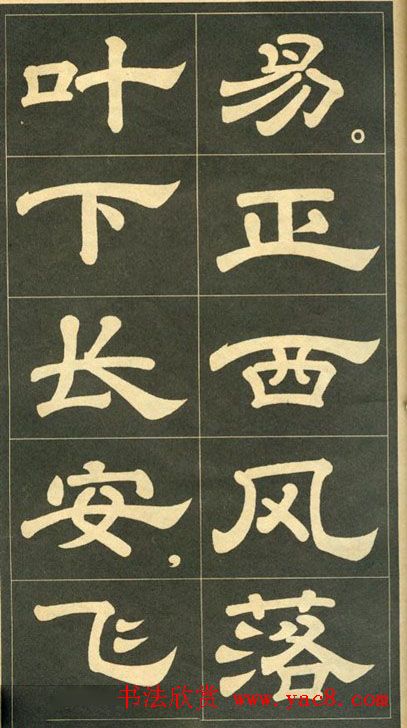 易。正西风落
叶下长安，飞
书法欣赏 www.yac8.com